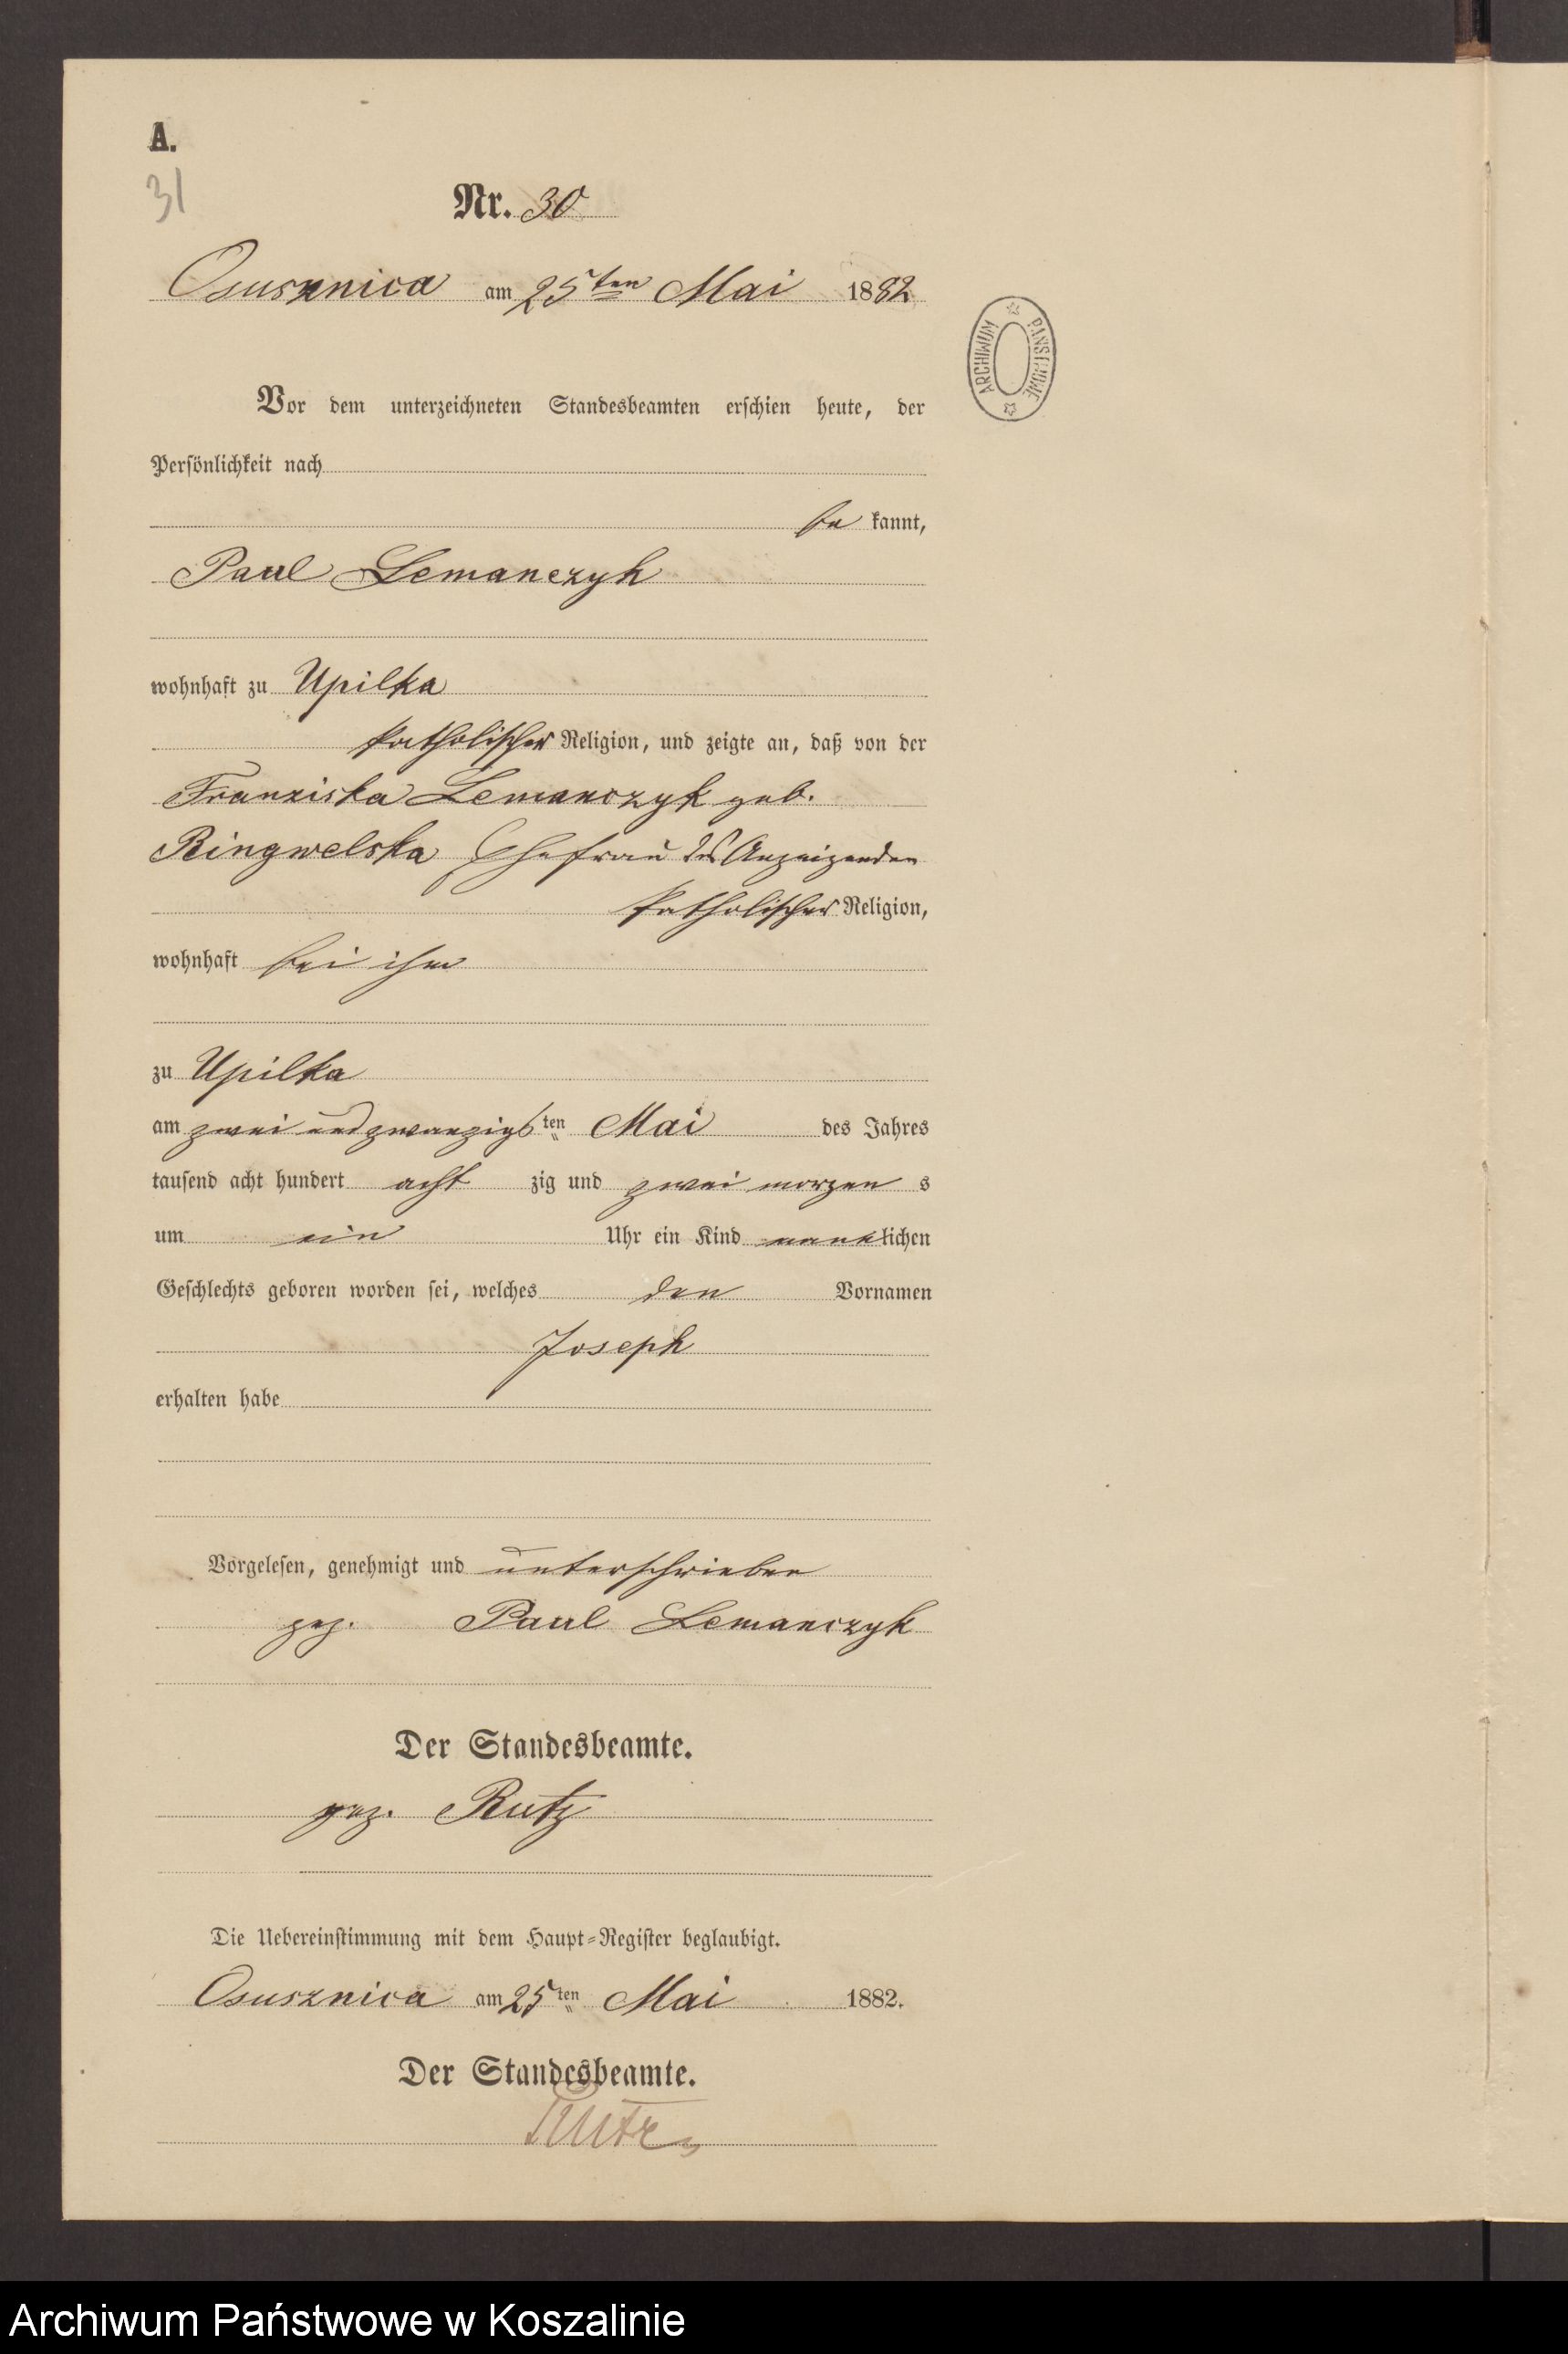 A.
31
Nr. 30
Osusznica am 25ten Mai 1882
ARCHIWUM PAŃSTWOWE
Vor dem unterzeichneten Standesbeamten erschien heute, der
Persönlichkeit nach
be kannt,
Paul Lemanczyk
wohnhaft zu Upilka
katholischer Religion, und zeigte an, daß von der
Franziska Lemanczyk geb.
Ringwelska Ehefrau des Anzeigenden
katholischer Religion,
wohnhaft bei ihm
zu Upilka
am zwei und zwanzigsten Mai des Jahres
tausend acht hundert acht zig und zwei morgen s
um ein Uhr ein Kind männlichen
Geschlechts geboren worden sei, welches den Vornamen
Joseph
erhalten habe
Vorgelesen, genehmigt und unterschrieben
gez. Paul Lemanczyk
Der Standesbeamte.
gez. Rutz
Die Uebereinstimmung mit dem Haupt-Register beglaubigt.
Osusznica am 25ten Mai 1882.
Der Standesbeamte.
Rutz
Archiwum Państwowe w Koszalinie